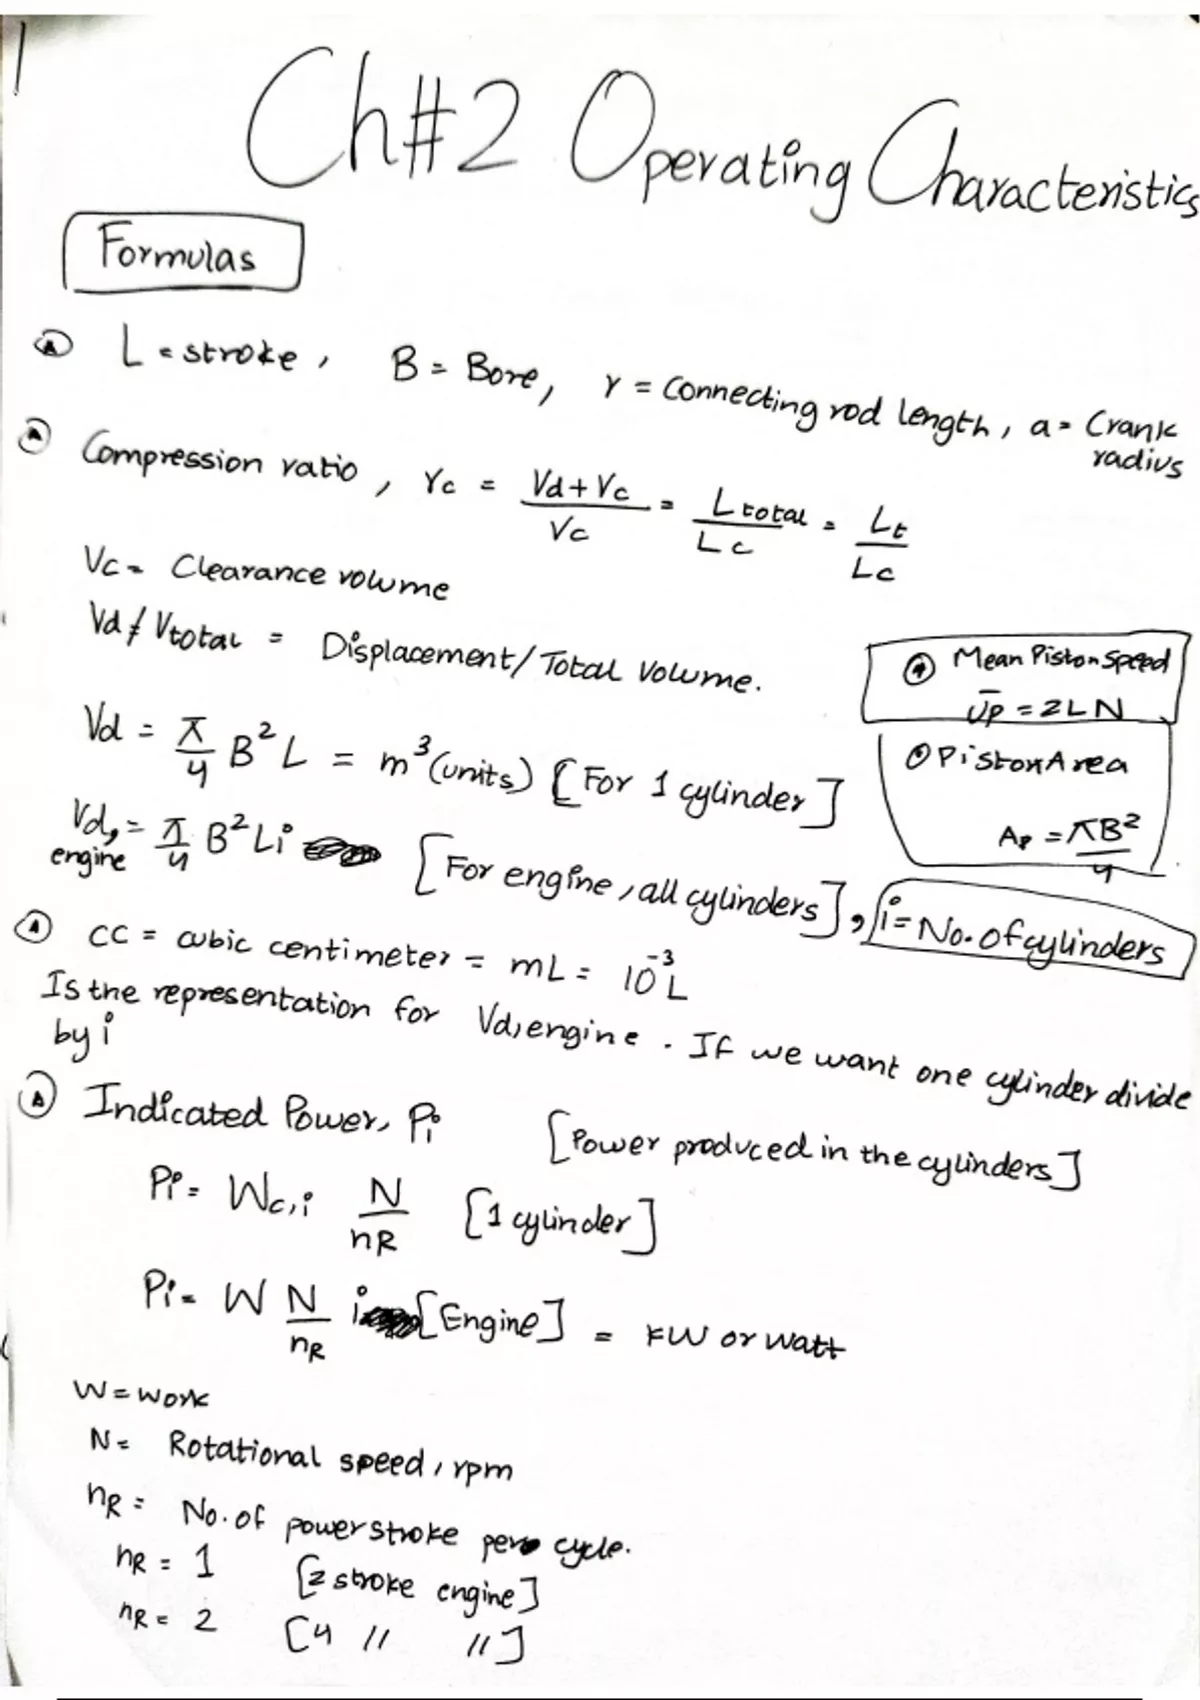 Ch#2 Operating Characteristics
Formulas
L = stroke, B = Bore, r = Connecting rod length, a = Crank radius
Compression ratio, rc = Vd+Vc / Vc = Ltotal / Lc = Lt / Lc
Vc = Clearance volume
Vd / Vtotal = Displacement/Total Volume.
Mean Piston Speed
Up = 2LN
Vd = π/4 B² L = m³ (units) [For 1 cylinder]
Piston Area
Ap = πB²/4
Vd, engine = π/4 B² L i [For engine, all cylinders], i = No. of cylinders
cc = cubic centimeter = mL = 10⁻³ L
Is the representation for Vd, engine. If we want one cylinder divide
by i
Indicated Power, Pi [Power produced in the cylinders]
Pi = Wc,i N/nR [1 cylinder]
Pi = W N/nR i [Engine] = kW or watt
W = work
N = Rotational speed, rpm
nR = No. of power stroke per cycle.
nR = 1 [2 stroke engine]
nR = 2 [4 // //]